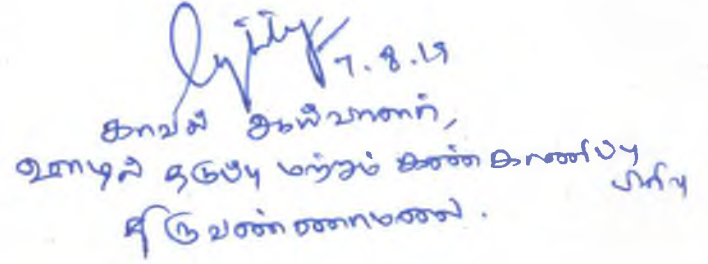 7.8.19
காவல் ஆய்வாளர்,
ஊழல் தடுப்பு மற்றும் கண்காணிப்பு பிரிவு
திருவண்ணாமலை.